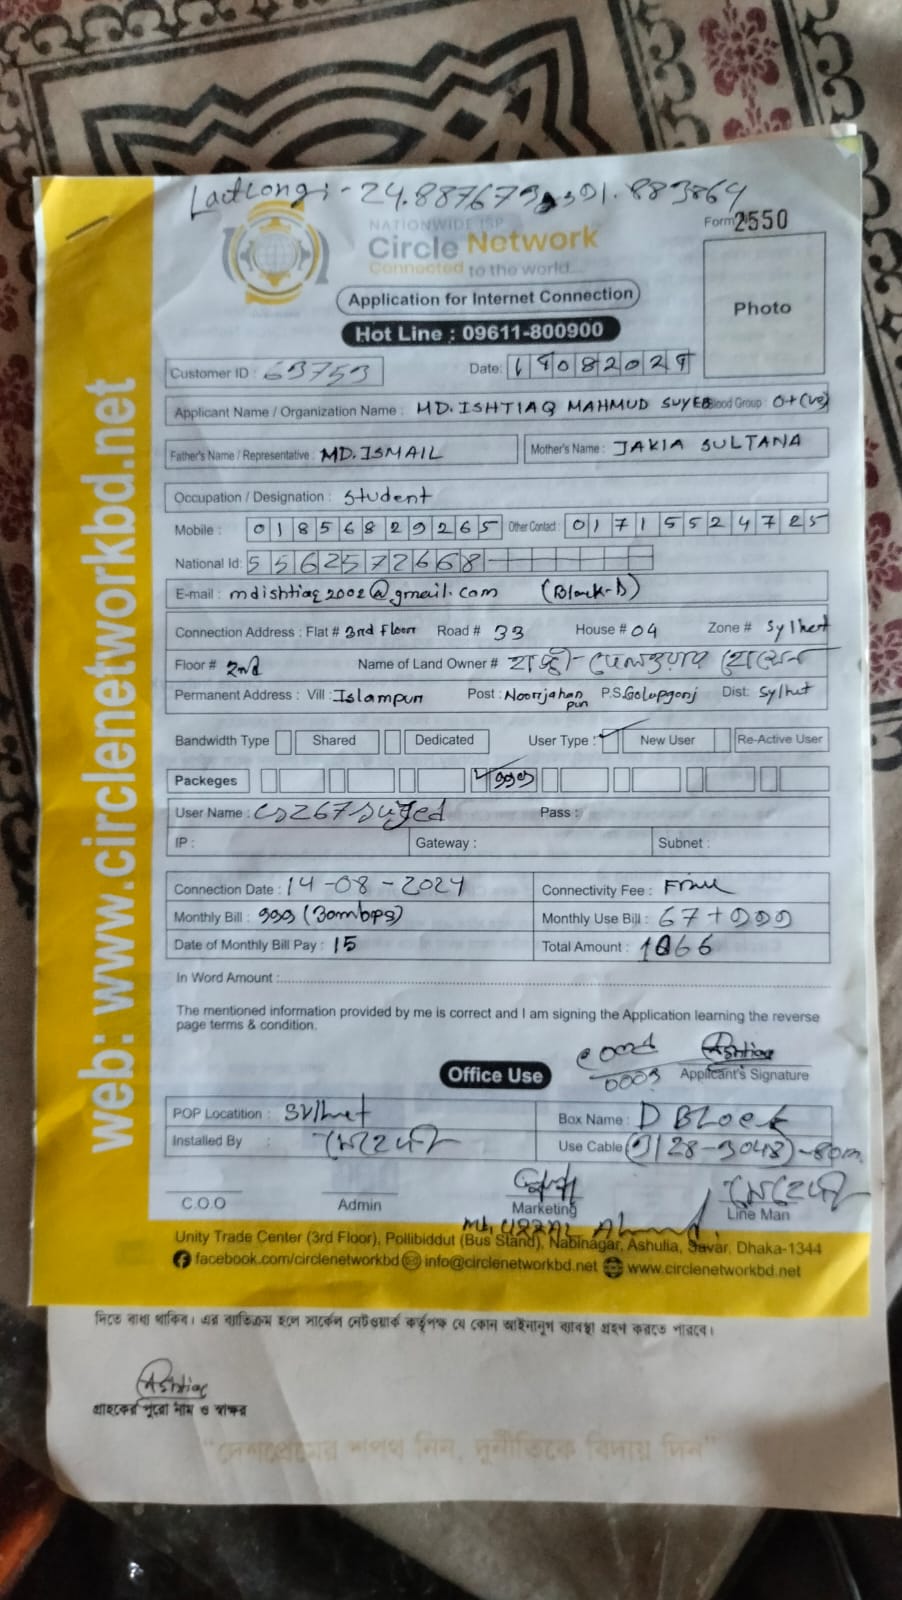 24.887673, 91.883864
NATIONWIDE ISP
Circle Network
Connected to the world....
Form 2550
Application for Internet Connection
Photo
Hot Line : 09611-800900
Customer ID : 63753 Date:
Applicant Name / Organization Name : MD. ISHTIAQ MAHMUD SUYEB Blood Group : O+(ve)
Father's Name / Representative : MD. ISMAIL Mother's Name : JAKIA SULTANA
Occupation / Designation : Student
Mobile : 01856829265 Other Contact : 01715524725
National Id: 5562572668
E-mail : mdishtiaq2002@gmail.com (Block-D)
Connection Address : Flat # 3rd Floor Road # 33 House # 04 Zone # Sylhet
Floor # 2nd Name of Land Owner # হাজী হোসেন
Permanent Address : Vill : Islampur Post : Noorjahan pur P.S. Golapgonj Dist: Sylhet
Bandwidth Type Shared Dedicated User Type : New User Re-Active User
Packeges 999
User Name : Pass :
IP : Gateway : Subnet :
Connection Date : 14-08-2024 Connectivity Fee : Free
Monthly Bill : 999 (30mbps) Monthly Use Bill : 67+999
Date of Monthly Bill Pay : 15 Total Amount : 1066
In Word Amount :
The mentioned information provided by me is correct and I am signing the Application learning the reverse
page terms & condition.
Ishtiaq
Office Use Applicant's Signature
POP Locatition : Sylhet Box Name : D BLock
Installed By : Use Cable
C.O.O Admin Marketing Line Man
Unity Trade Center (3rd Floor), Pollibiddut (Bus Stand), Nabinagar, Ashulia, Savar, Dhaka-1344
facebook.com/circlenetworkbd info@circlenetworkbd.net www.circlenetworkbd.net
web: www.circlenetworkbd.net
দিতে বাধ্য থাকিব। এর ব্যতিক্রম হলে সার্কেল নেটওয়ার্ক কর্তৃপক্ষ যে কোন আইনানুগ ব্যবস্থা গ্রহণ করতে পারবে।
Ishtiaq
গ্রাহকের পুরো নাম ও স্বাক্ষর
"দেশপ্রেমের শপথ নিন, দুর্নীতিকে বিদায় দিন"